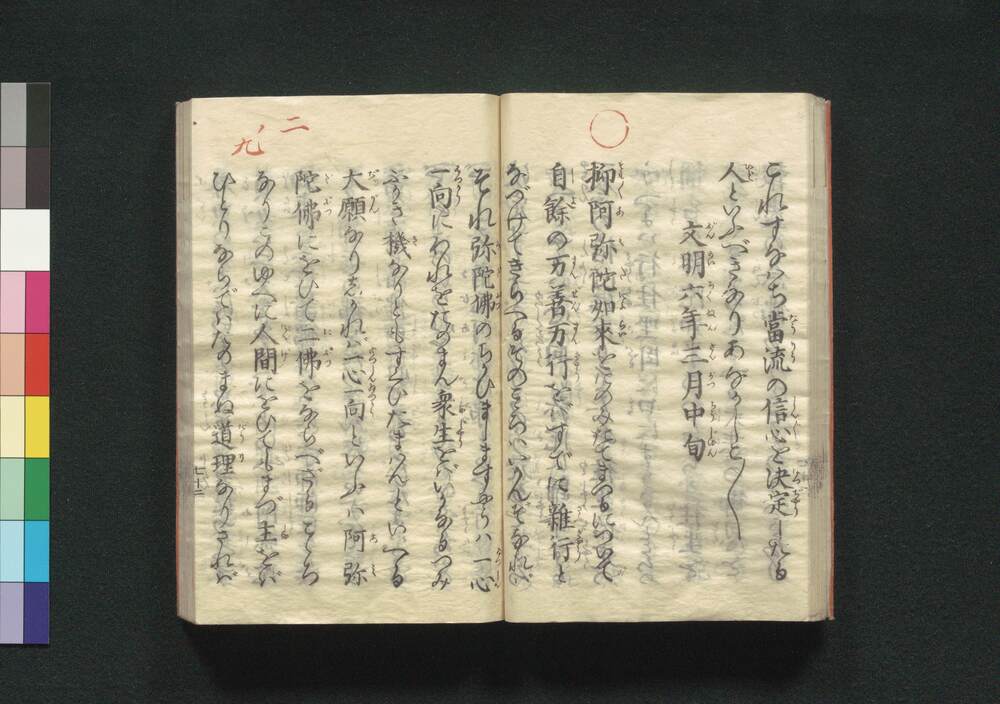 これすなはち當流の信心を決定したる
人といふべきなりあなかしこ〳〵
文明六年三月中旬
抑阿弥陀如来をたのみたてまつるについて
自餘の万善万行をばすでに雜行と
なづけてきらへるそのこゝろはいかんぞなれば
二ノ九
それ弥陀佛のちかひましますやうは一心
一向にわれをたのまん衆生をばいかなるつみ
ふかき機なりともすくひたまはんといへる
大願なりしかれば一心一向といふは阿弥
陀佛にをひて二佛をならべざるこゝろ
なりこのゆへに人間にをひてもまづ主をば
ひとりならではたのまぬ道理なりされば